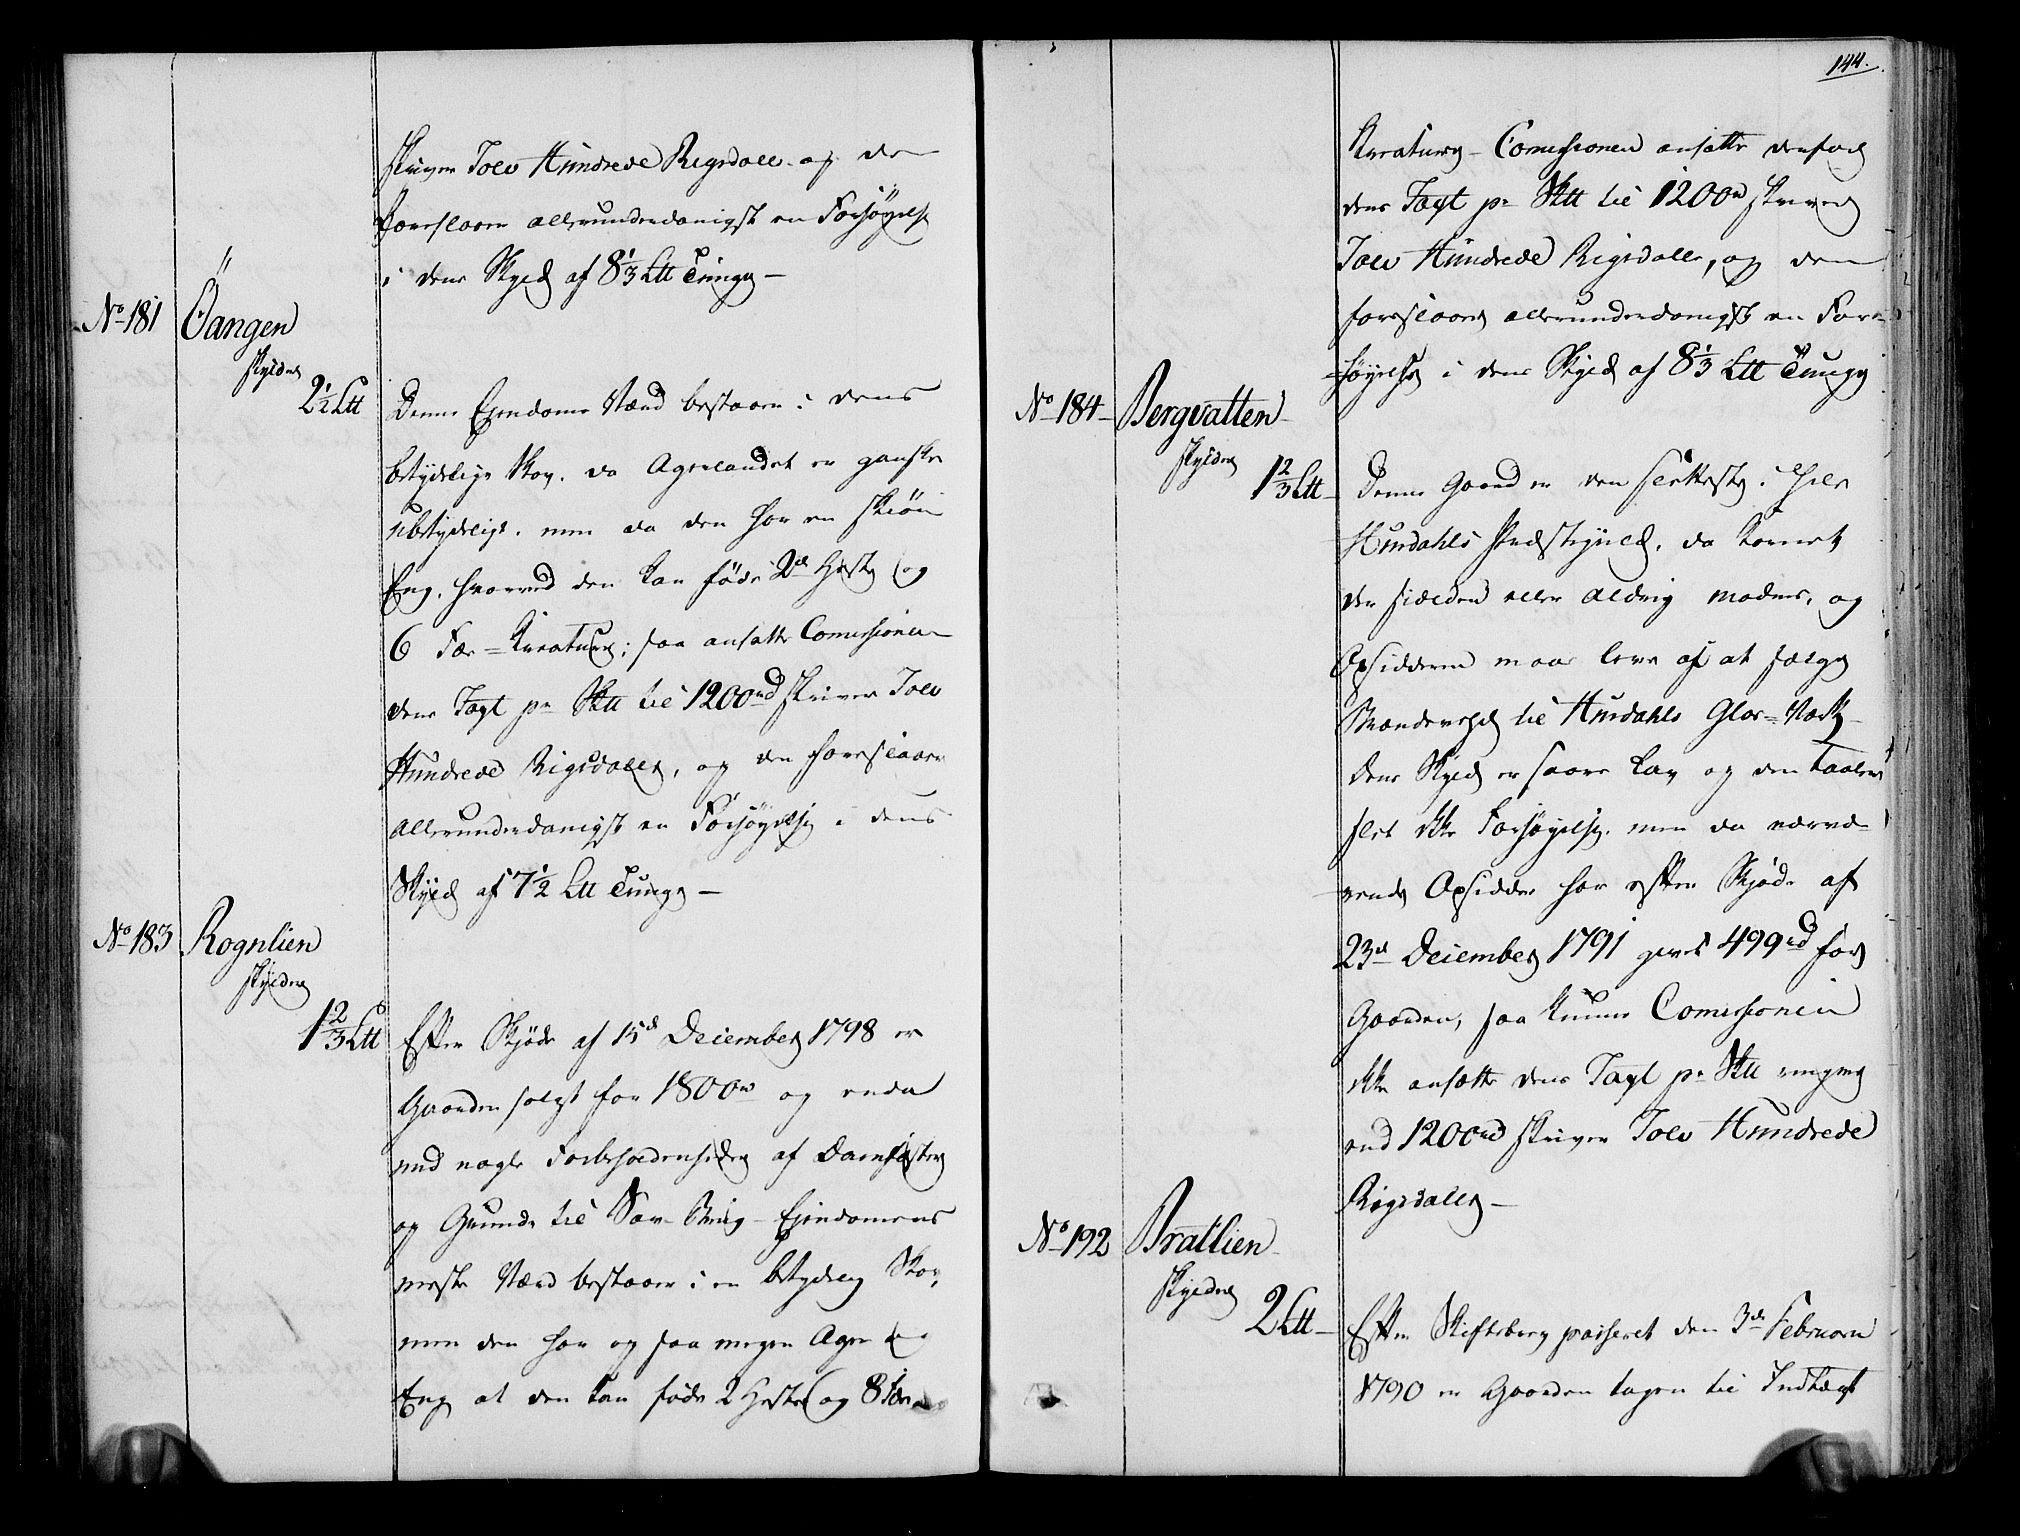 skriver Tolv Hundrede Rigsdaler og den
foreslaaer allerunderdanigst en Forhøyelse
i dens Skyld af 8 1/3 Ltt Tunge –
No 181 Öangen
skylder
2 1/2 Ltt
Denne Ejendoms Værd bestaaer i dens
betydelige Skov, da Agerlandet er ganske
ubetydeligt, men da den har en skiön
Eng, hvorved den kan föde 2de Heste og
6 Fæe=Kreature; saa ansatte Comissionen
dens Taxt pr Sktt til 1200rd skriver Tolv
Hundrede Rigsdaler, og den foreslaaer
allerunderdanigst en Forhöyelse i dens
Skyld af 7 1/2 Ltt Tunge –
No 183 Rognlien
skylder
1 2/3 Ltt
Efter Skjöde af 15d December 1798 er
Gaarden solgt for 1800rd og endda
med nogle Forbeholdenheder af Damfæster
og Grunde til Sav-Brug – Ejendommens
meste Værd bestaaer i en betydelig Skov,
men den har og saa megen Ager og
Eng at den kan föde 2 Heste og 8 Fæe
144.
Kreature – Comissionen ansatte derfor
dens Taxt pr Sktt til 1200rd skriver
Tolv Hundrede Rigsdaler, og den
foreslaaer allerunderdanigst en For=
=höyelse i dens Skyld af 8 1/3 Ltt Tunge
No 184 – Bergvatten
skylder
1 2/3 Ltt –
Denne Gaard er den sletteste i hele
Hurdahls Præstegield, da Kornet
der sielden eller aldrig modnes, og
Opsidderen maae leve af at sælge
Brændeved til Hurdahls Glas=Værk –
Dens Skyld er saare lav og den taaler
slet ikke Forhöyelse, men da nærvæ-
rende Opsidder har efter Skjöde af
23d December 1791 givet 499rd for
Gaarden, saa kunne Comissionen
ikke ansætte dens Taxt pr Sktt ringere
end 1200rd skriver Tolv Hundrede
Rigsdaler –
No 192 Brattlien
skylder
2 Ltt –
Efter Skiftebrev passeret den 3de Februarii
1790 er Gaarden tagen til Indtægt